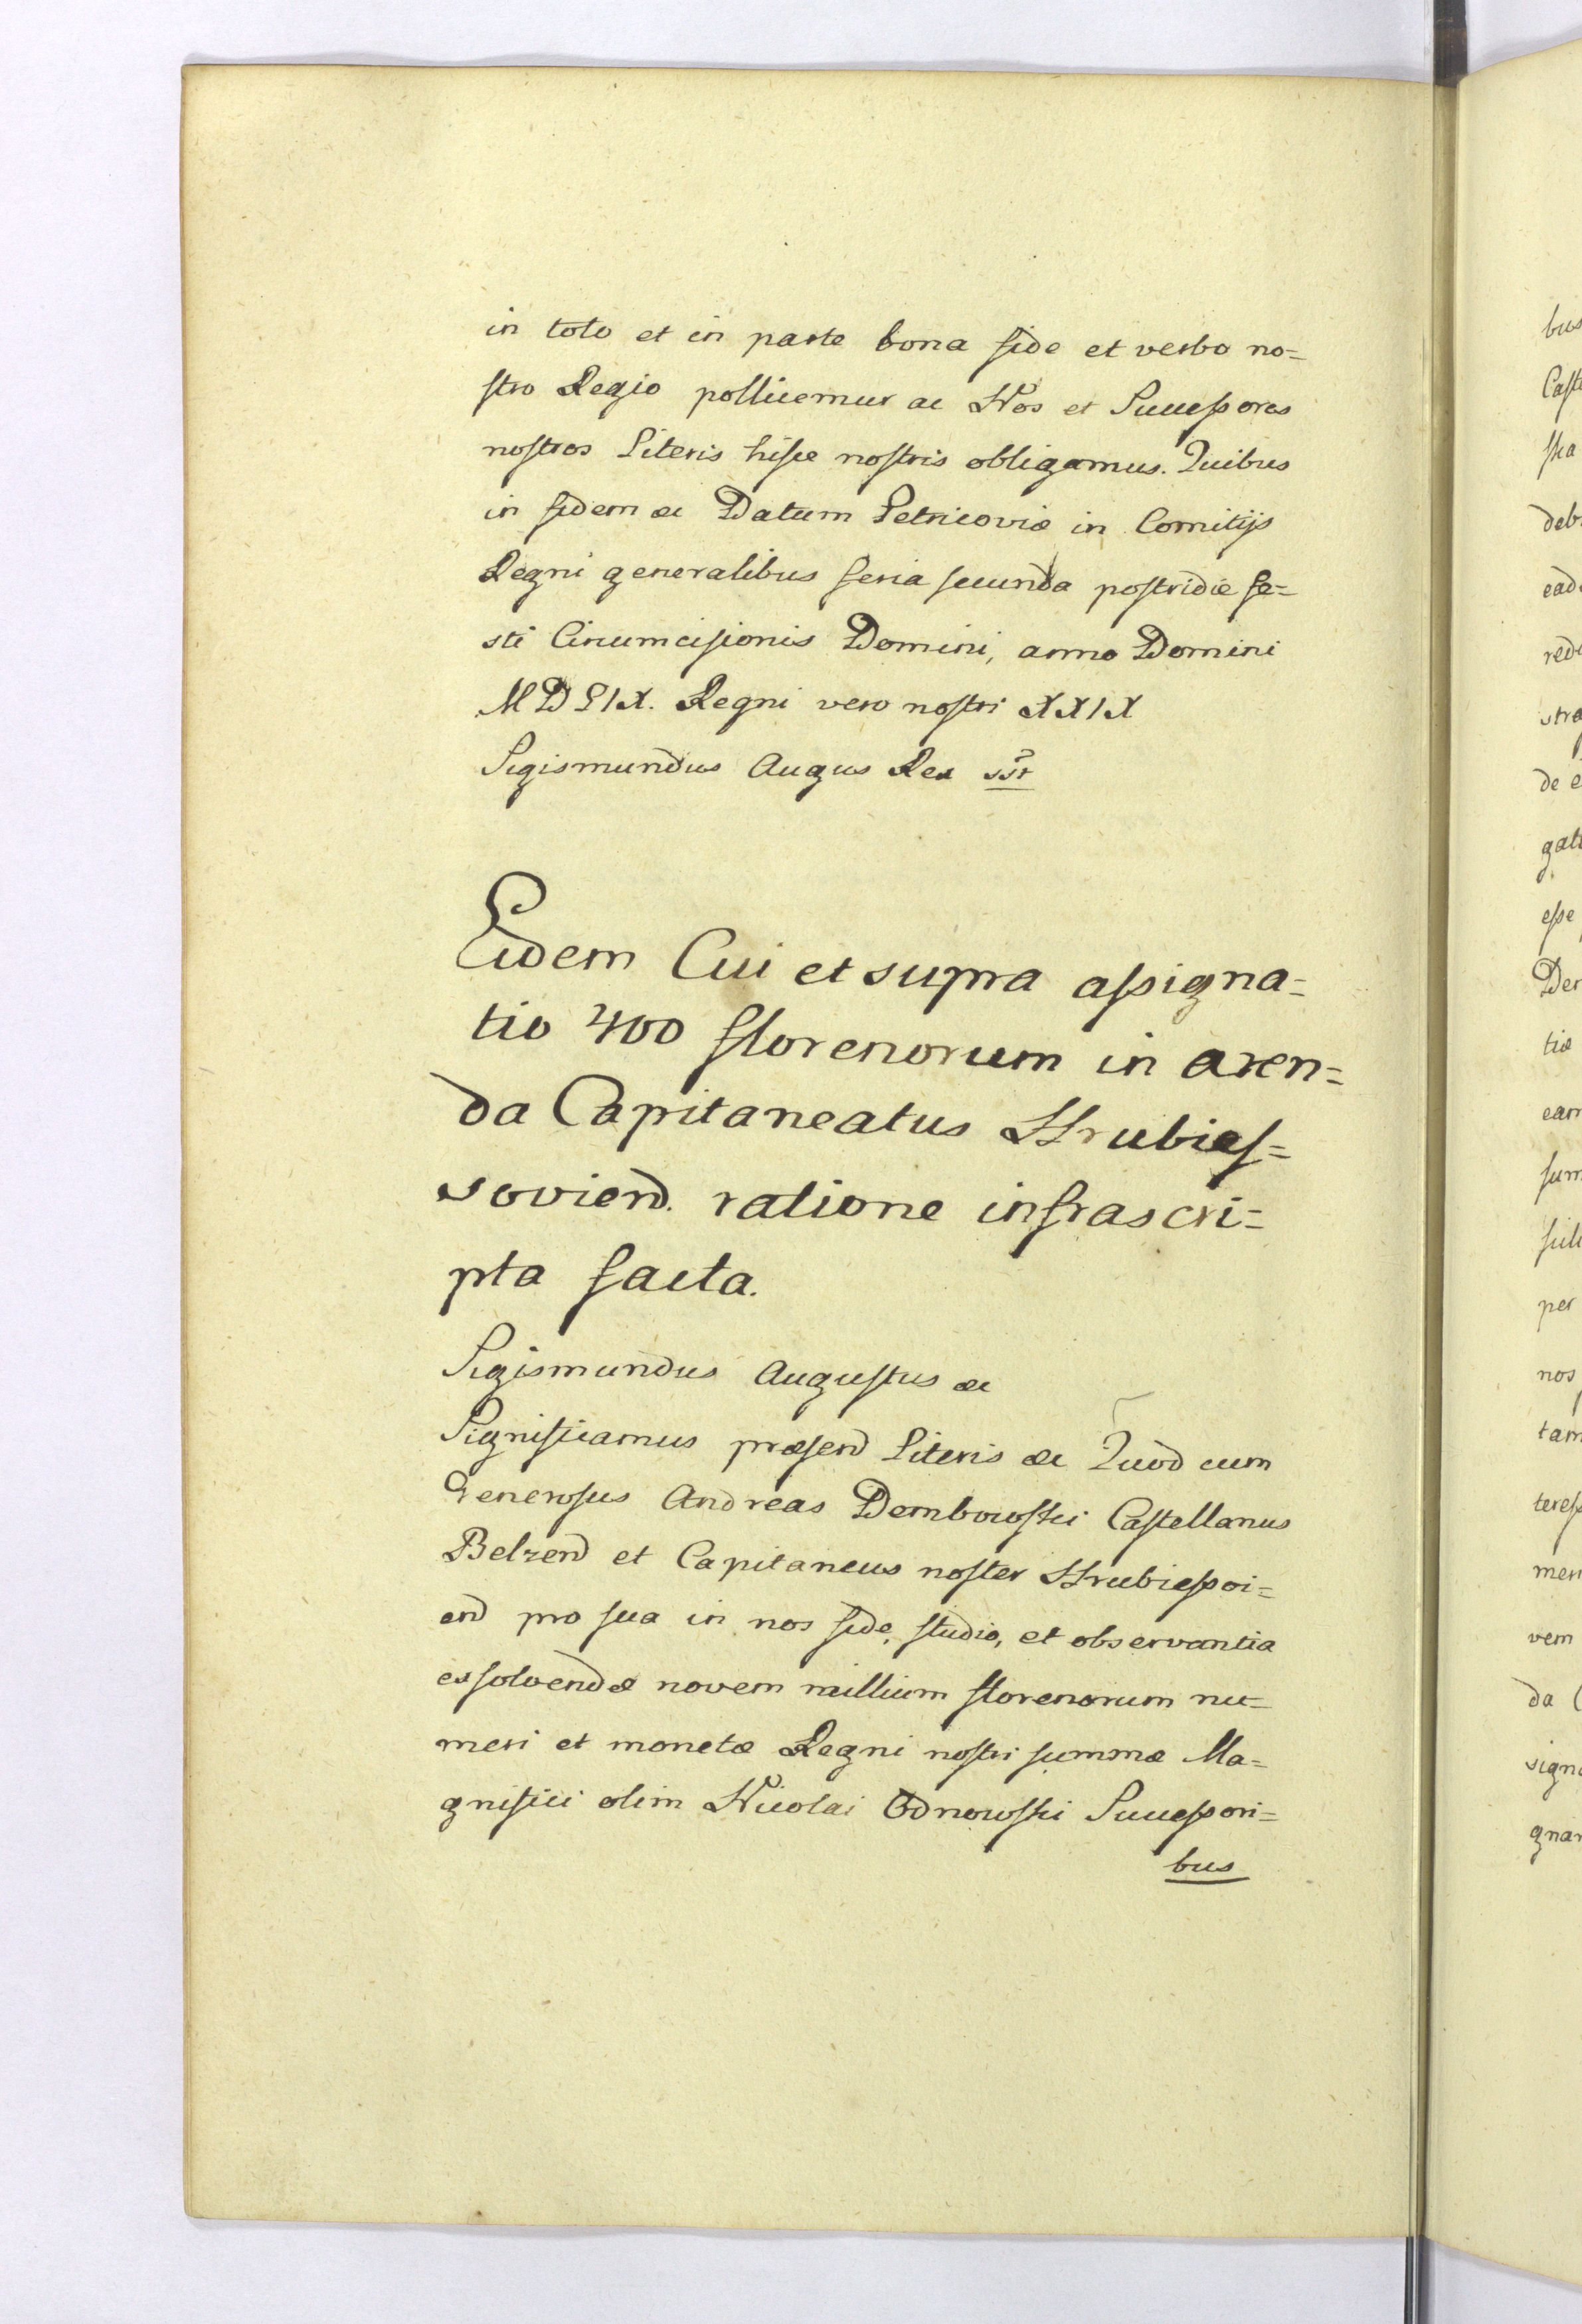 in toto et in parte bona fide et verbo no=
stro Regio pollicemur ac Nos et Successores
nostros Literis hisce nostris obligamus. Quibus
in fidem &c Datum Petricoviæ in Comitijs
Regni generalibus feria secunda postridie fe=
sti Circumcisionis Domini, anno Domini
MDLIX. Regni vero nostri XXIX
Sigismundus Augus Rex sst
Eidem Cui et supra assigna=
tio 400 florenorum in aren=
da Capitaneatus Hrubies=
soviend. ratione infrascri=
pta facta.
Sigismundus Augustus &c
Significamus præsend Literis &c Quod cum
Generosus Andreas Dembowski Castellanus
Belzend et Capitaneus noster Hrubiessoi=
end pro sua in nos fide, studio, et observantia
exsolvendæ novem millium florenorum nu=
meri et monetæ Regni nostri summæ Ma=
gnifici olim Nicolai Odnowski Successori=
bus
bus
Cast
ska
deb
ead
redi
stra
de e
gat
esse
Der
tiæ
eam
sum
per
nos
tam
teress
men
vem
da C
signa
gnar